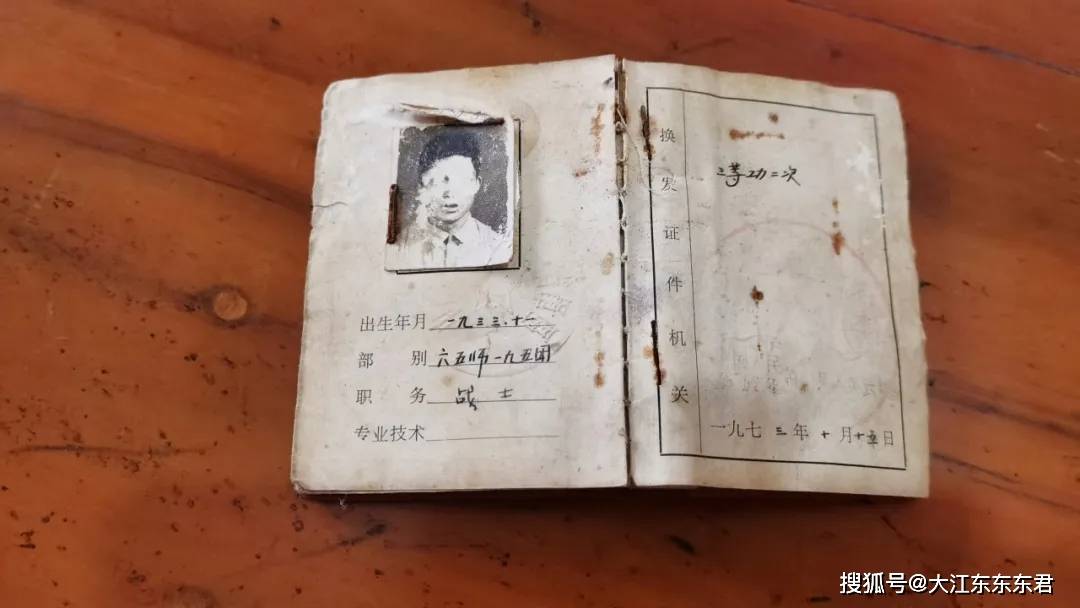 出生年月 一九三三.十一
部 别 六五师一九五团
职 务 战士
专业技术
换发证件机关
等功二次
一九七三年十月十五日
搜狐号@大江东东东君